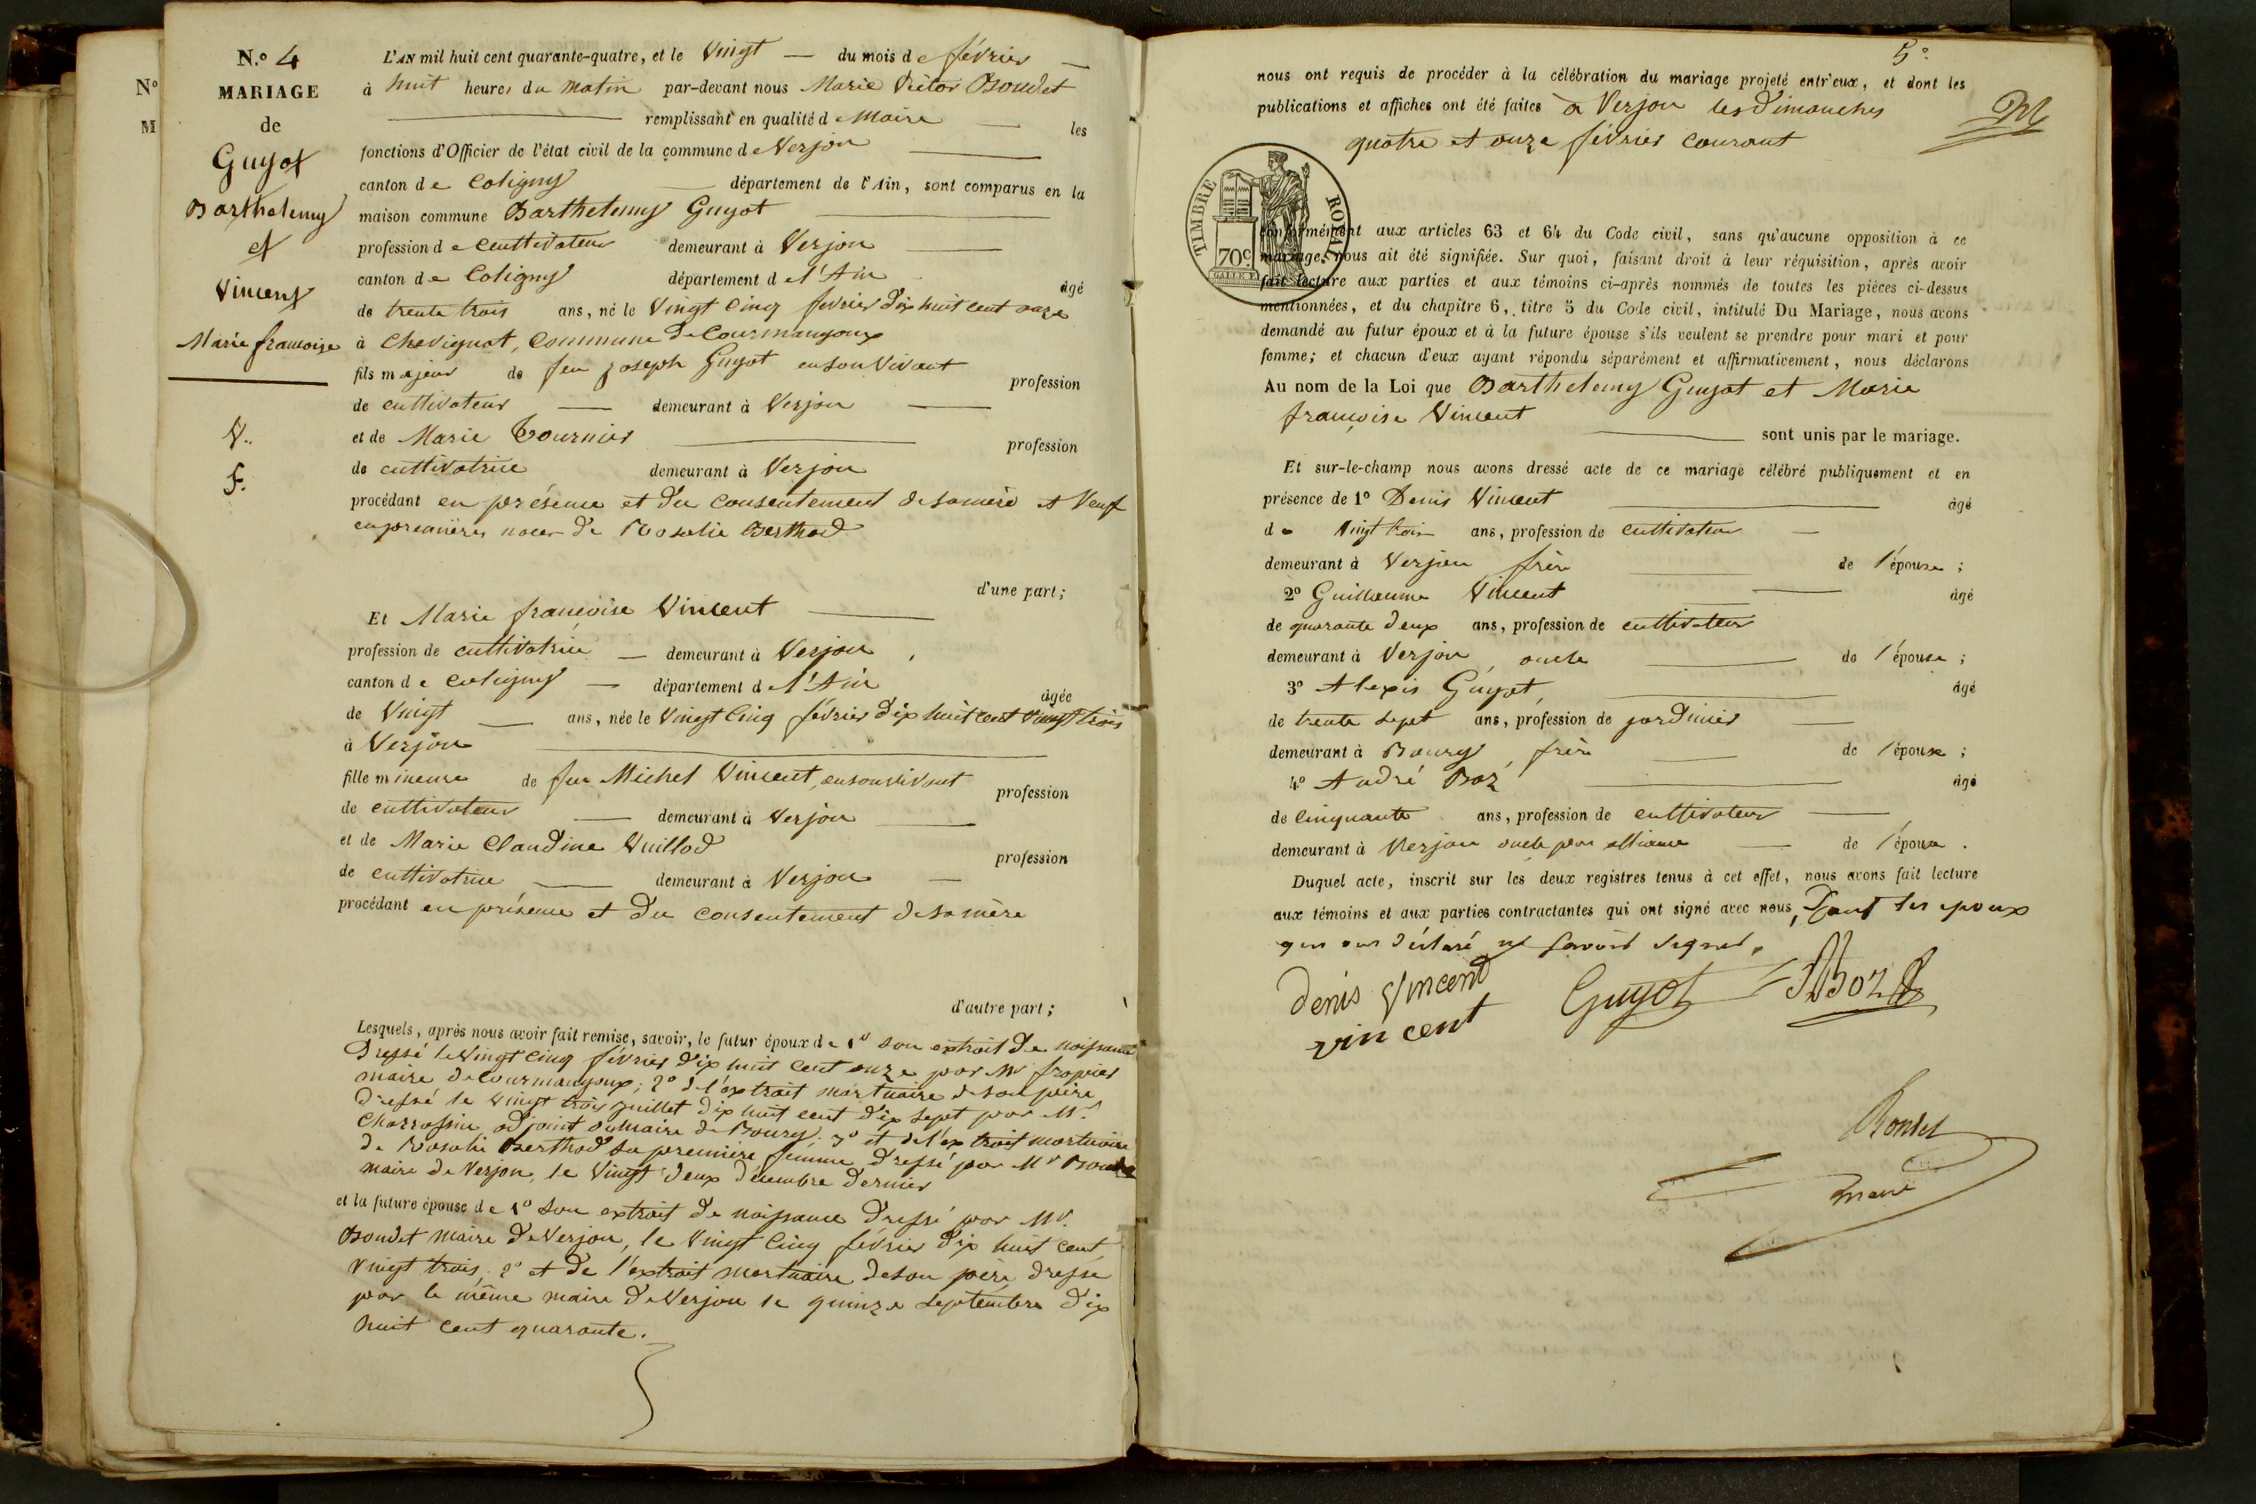 N.º 4
MARIAGE
de
Guyot
Barthelemy
et
Vincent
Marie françoise
V.
F.
Nº
M
L'AN mil huit cent quarante-quatre, et le Vingt du mois de février
à huit heures du matin par-devant nous Marie Victor Boudet
remplissant en qualité de Maire les
fonctions d'Officier de l'état civil de la commune de Verjon
canton de Coligny département de l'Ain, sont comparus en la
maison commune Barthelemy Guyot
profession de Cultivateur demeurant à Verjon
canton de Coligny département de l'Ain âgé
de trente trois ans, né le Vingt Cinq février dix huit cent onze
à Chevignat, Commune de Courmangoux
fils majeur de feu Joseph Guyot en son Vivant profession
de cultivateur demeurant à Verjon
et de Marie Tournier profession
de cultivatrice demeurant à Verjon
procédant en présence et du consentement de sa mère et Veuf
en premières noces de Rosalie Berthod
d'une part;
Et Marie françoise Vincent
profession de cultivatrice demeurant à Verjon,
canton de Coligny département de l'Ain âgée
de Vingt ans, née le Vingt Cinq février dix huit cent vingt trois
à Verjon
fille mineure de feu Michel Vincent, en son vivant profession
de cultivateur demeurant à Verjon
et de Marie Claudine Vuillod profession
de cultivatrice demeurant à Verjon
procédant en présence et du consentement de sa mère
d'autre part;
Lesquels, après nous avoir fait remise, savoir, le futur époux de 1º son extrait de naissance
Dressé le Vingt Cinq février dix huit cent onze par Mr fropier
maire de Courmangoux; 2º de l'extrait mortuaire de son père
Dressé le Vingt trois juillet dix huit cent dix sept par Mr
Charrassin adjoint du maire de Bourg. 3º et de l'extrait mortuaire
de Rosalie Berthod sa première femme dressé par Mr Boudet
maire de Verjon, le Vingt deux décembre dernier
et la future épouse de 1º son extrait de naissance Dressé par Mr.
Boudet maire de Verjon, le Vingt Cinq février dix huit cent
vingt trois, 2º et de l'extrait mortuaire de son père dressé
par le même maire de Verjon le quinze septembre dix
huit cent quarante.
5º
nous ont requis de procéder à la célébration du mariage projeté entr'eux, et dont les
publications et affiches ont été faites à Verjon les dimanches
quatre et onze février courant
TIMBRE ROYAL
70c.
conformément aux articles 63 et 64 du Code civil, sans qu'aucune opposition à ce
mariage, nous ait été signifiée. Sur quoi, faisant droit à leur réquisition, après avoir
fait lecture aux parties et aux témoins ci-après nommés de toutes les pièces ci-dessus
mentionnées, et du chapitre 6, titre 5 du Code civil, intitulé Du Mariage, nous avons
demandé au futur époux et à la future épouse s'ils veulent se prendre pour mari et pour
femme; et chacun d'eux ayant répondu séparément et affirmativement, nous déclarons
Au nom de la Loi que Barthelemy Guyot et Marie
françoise Vincent
sont unis par le mariage.
Et sur-le-champ nous avons dressé acte de ce mariage célébré publiquement et en
présence de 1º Denis Vincent âgé
de Vingt trois ans, profession de cultivateur
demeurant à Verjon frère de l'épouse;
2º Guillaume Vincent âgé
de quarante deux ans, profession de cultivateur
demeurant à Verjon, oncle de l'épouse;
3º Alexis Guyot, âgé
de trente sept ans, profession de jardinier
demeurant à Bourg frère de l'époux;
4º André Boz âgé
de Cinquante ans, profession de cultivateur
demeurant à Verjon oncle par alliance de l'épouse.
Duquel acte, inscrit sur les deux registres tenus à cet effet, nous avons fait lecture
aux témoins et aux parties contractantes qui ont signé avec nous, Sauf les epoux
qui ont déclaré ne savoir signer.
denis Vincent
Guyot
ABoz
vin cent
Boudet
maire